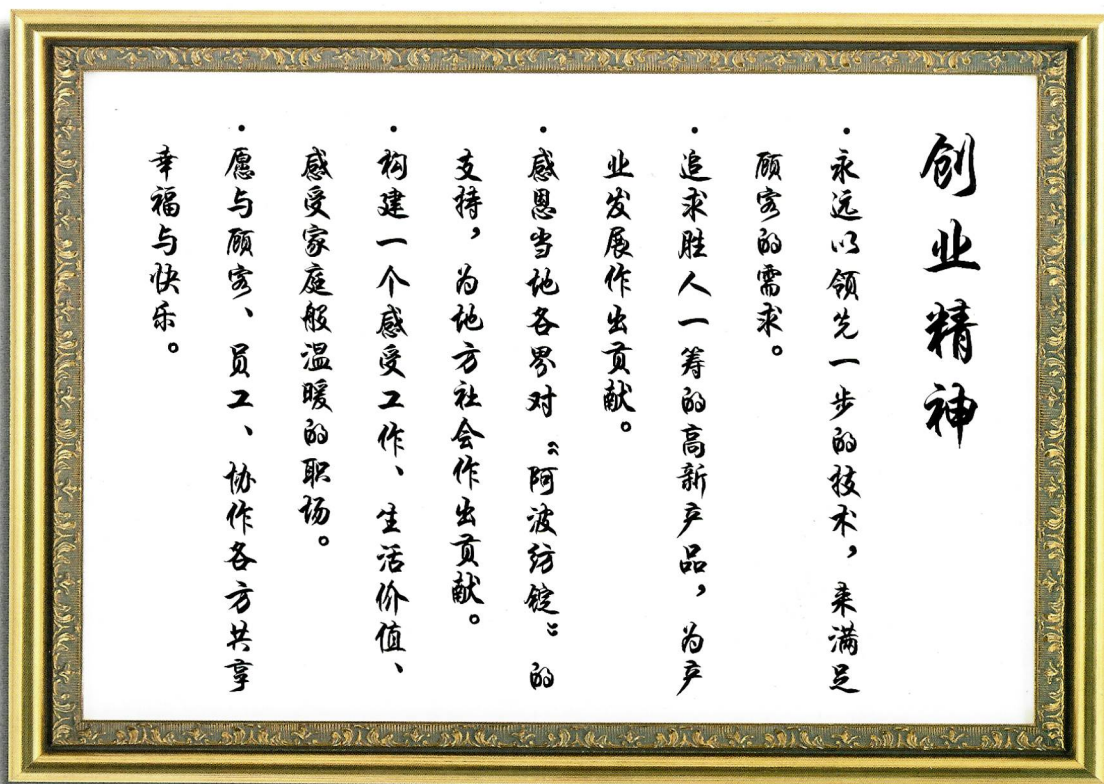 创业精神
・永远以领先一步的技术，来满足
顾客的需求。
・追求胜人一筹的高新产品，为产
业发展作出贡献。
・感恩当地各界对“阿波纺锭”的
支持，为地方社会作出贡献。
・构建一个感受工作、生活价值、
感受家庭般温暖的职场。
・愿与顾客、员工、协作各方共享
幸福与快乐。